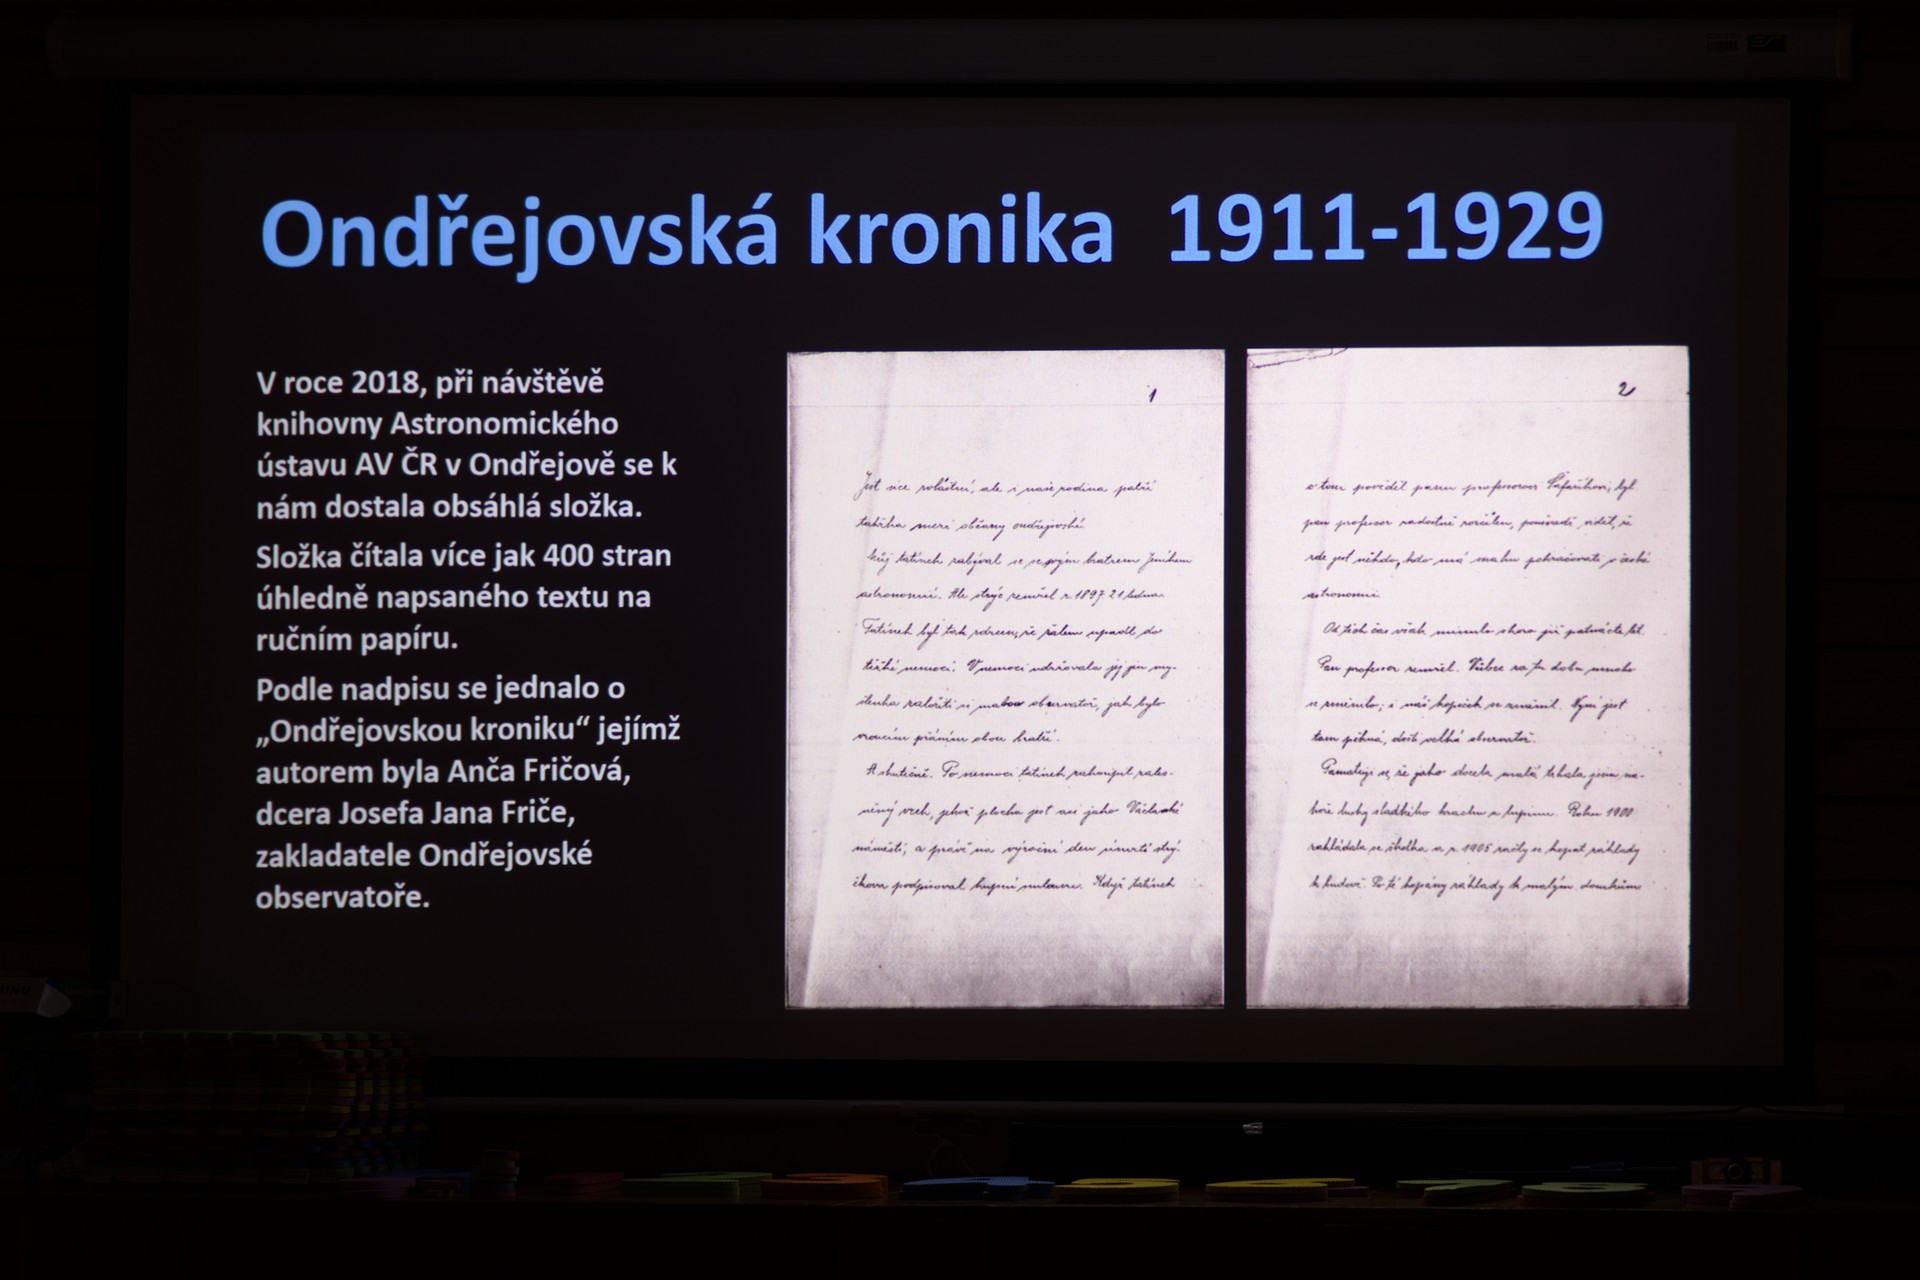 Ondřejovská kronika 1911-1929
V roce 2018, při návštěvě
knihovny Astronomického
ústavu AV ČR v Ondřejově se k
nám dostala obsáhlá složka.
Složka čítala více jak 400 stran
úhledně napsaného textu na
ručním papíru.
Podle nadpisu se jednalo o
„Ondřejovskou kroniku“ jejímž
autorem byla Anča Fričová,
dcera Josefa Jana Friče,
zakladatele Ondřejovské
observatoře.
1
Jest sice zvláštní, ale i naše rodina patří
takřka mezi občany ondřejovské
Můj tatínek zabýval se se svým bratrem Jeníkem
astronomií. Ale strýc zemřel r. 1897 21 ledna.
Tatínek byl tak zdrcen, že žalem upadl do
těžké nemoci. V nemoci udržovala jej jen my-
šlenka založiti si malou observatoř, jak bylo
vroucím přáním obou bratří.
A skutečně. Po nemoci tatínek zakoupil zales-
něný vrch, jehož plocha jest asi jako Václavské
náměstí, a právě na výroční den úmrtí strý-
čkova podpisoval kupní smlouvu. Když tatínek
2
o tom pověděl panu professorovi Šafaříkovi, byl
pan professor radostně vzrušen, poněvadž viděl, že
zde jest někdo, kdo má snahu pokračovati v české
astronomii.
Od těch čas však minulo skoro již patnácte let.
Pan professor zemřel. Vůbec za tu dobu mnoho
se změnilo; i náš kopeček se změnil. Nyní jest
tam pěkná, dosti velká observatoř.
Pamatuji se, že jako docela malá trhala jsem na-
hoře luky sladkého hrachu a lupinu. Roku 1900
zakládala se školka a r. 1905 začly se kopat základy
k budově. Po té kopány základy k malým domkům